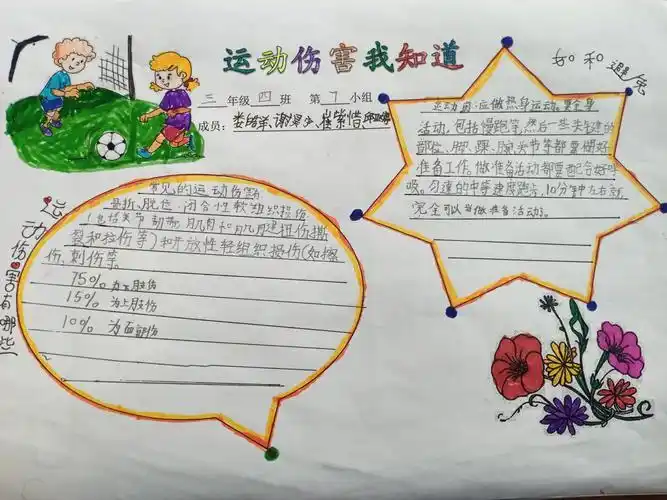 运动伤害我知道
三 年级 四 班 第 7 小组
成员：
如和避免
运动伤害有哪些
常见的运动伤害
骨折、脱臼、闭合性软组织损伤
（包括关节韧带、肌肉和肌腱扭伤撕
裂和拉伤等）和开放性轻组织损伤（如擦
伤、刺伤等。
75% 为下肢伤
15% 为上肢伤
10% 为面部伤
运动前，应做热身运动。要全身
活动，包括慢跑等，然后一些关键的
部位、脚、踝、腕关节等都要做好
准备工作，做准备活动都要配合好呼
吸。匀速的中等速度跑步，10分钟左右就
完全可以当做准备活动。